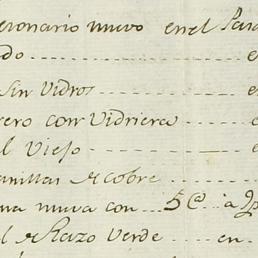 cionario nuevo en el Para
do --- e
Sin Vidros --- e
ero con Vidriera --- e
l Viejo --- e
anillas de cobre ---
na nueva con --- 5@ à
l de Razo Verde --- en